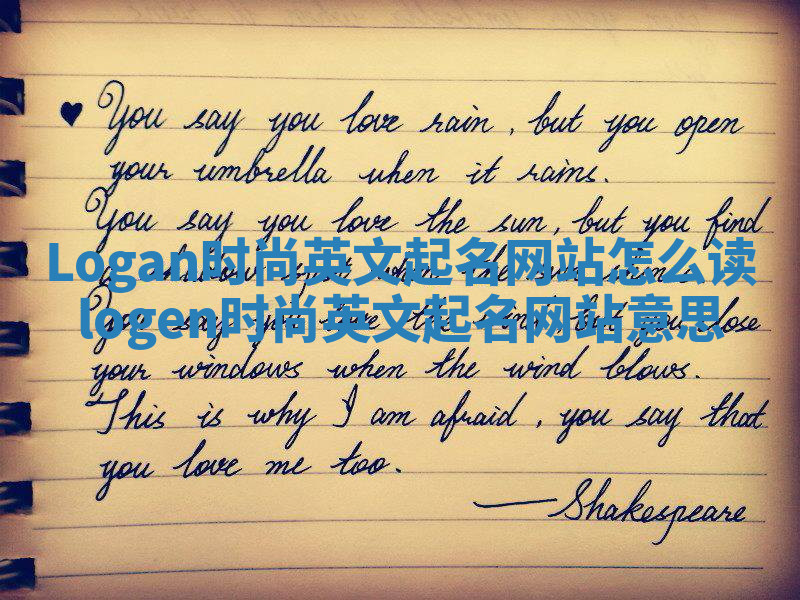 ♥ You say you love rain, but you open
your umbrella when it rains.
You say you love the sun, but you find
Logan时尚英文起名网站怎么读
logen时尚英文起名网站意思
You say you love the wind but you close
your windows when the wind blows.
This is why I am afraid, you say that
you love me too.
—Shakespeare